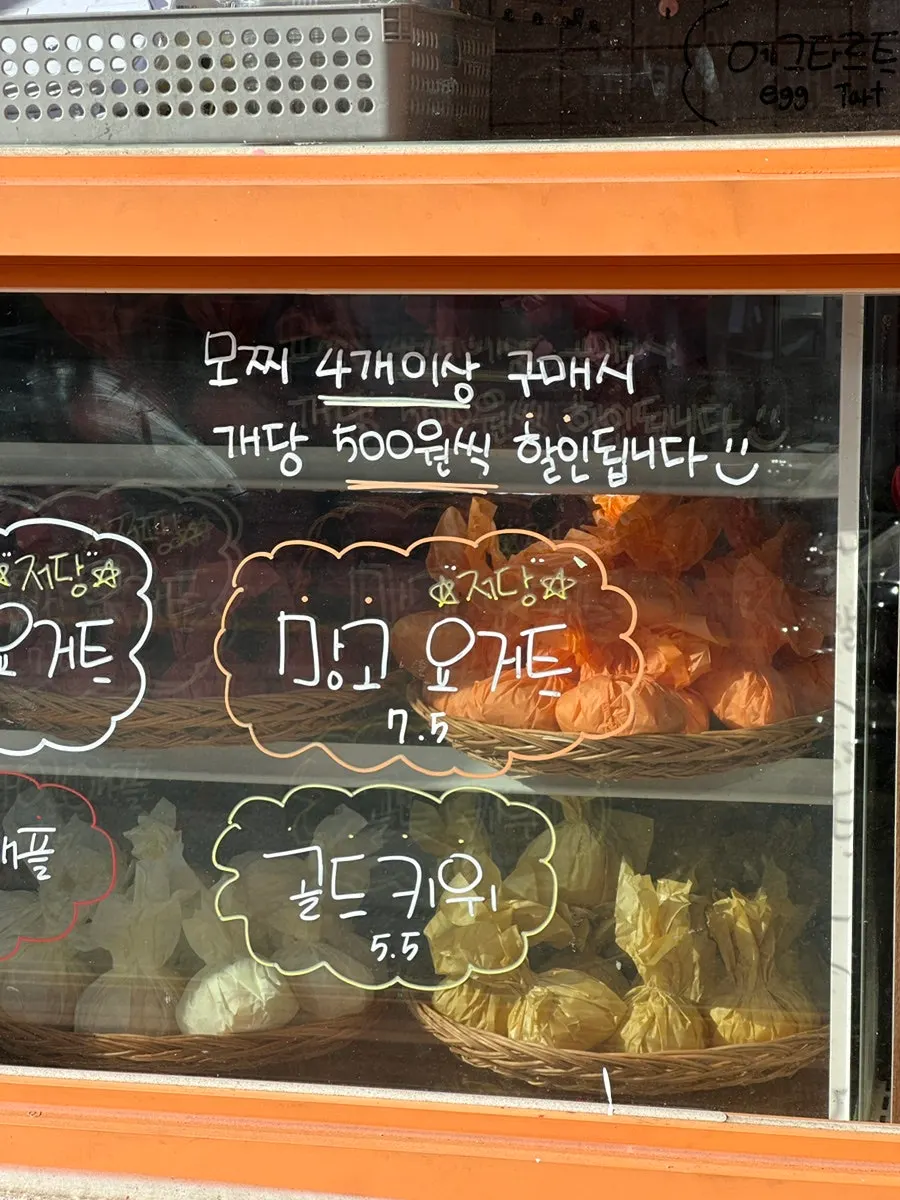 에그타르트
egg Tart
모찌 4개이상 구매시
개당 500원씩 할인됩니다
저당
요거트
저당
망고 요거트
7.5
골드키위
5.5